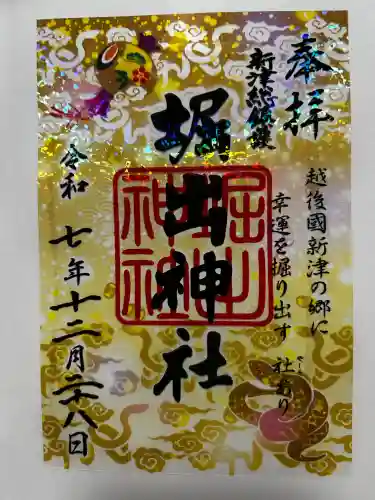 奉拝
新津総鎮護
越後國新津の郷に
幸運を掘り出す 社あり
やしろ
堀出神社
堀出神社
令和七年十二月二十八日